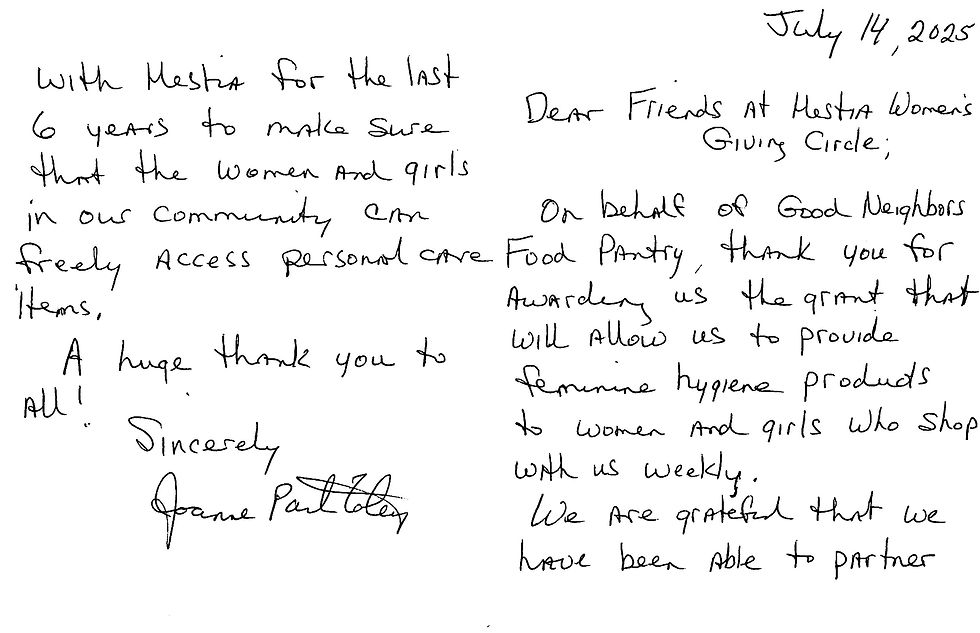 July 14, 2025
Dear Friends at Hestia Women's
Giving Circle;
On behalf of Good Neighbors
Food Pantry, thank you for
awarding us the grant that
will allow us to provide
feminine hygiene products
to women and girls who shop
with us weekly.
We are grateful that we
have been able to partner
with Hestia for the last
6 years to make sure
that the women and girls
in our community can
freely access personal care
items.
A huge thank you to
all!
Sincerely
Joanne